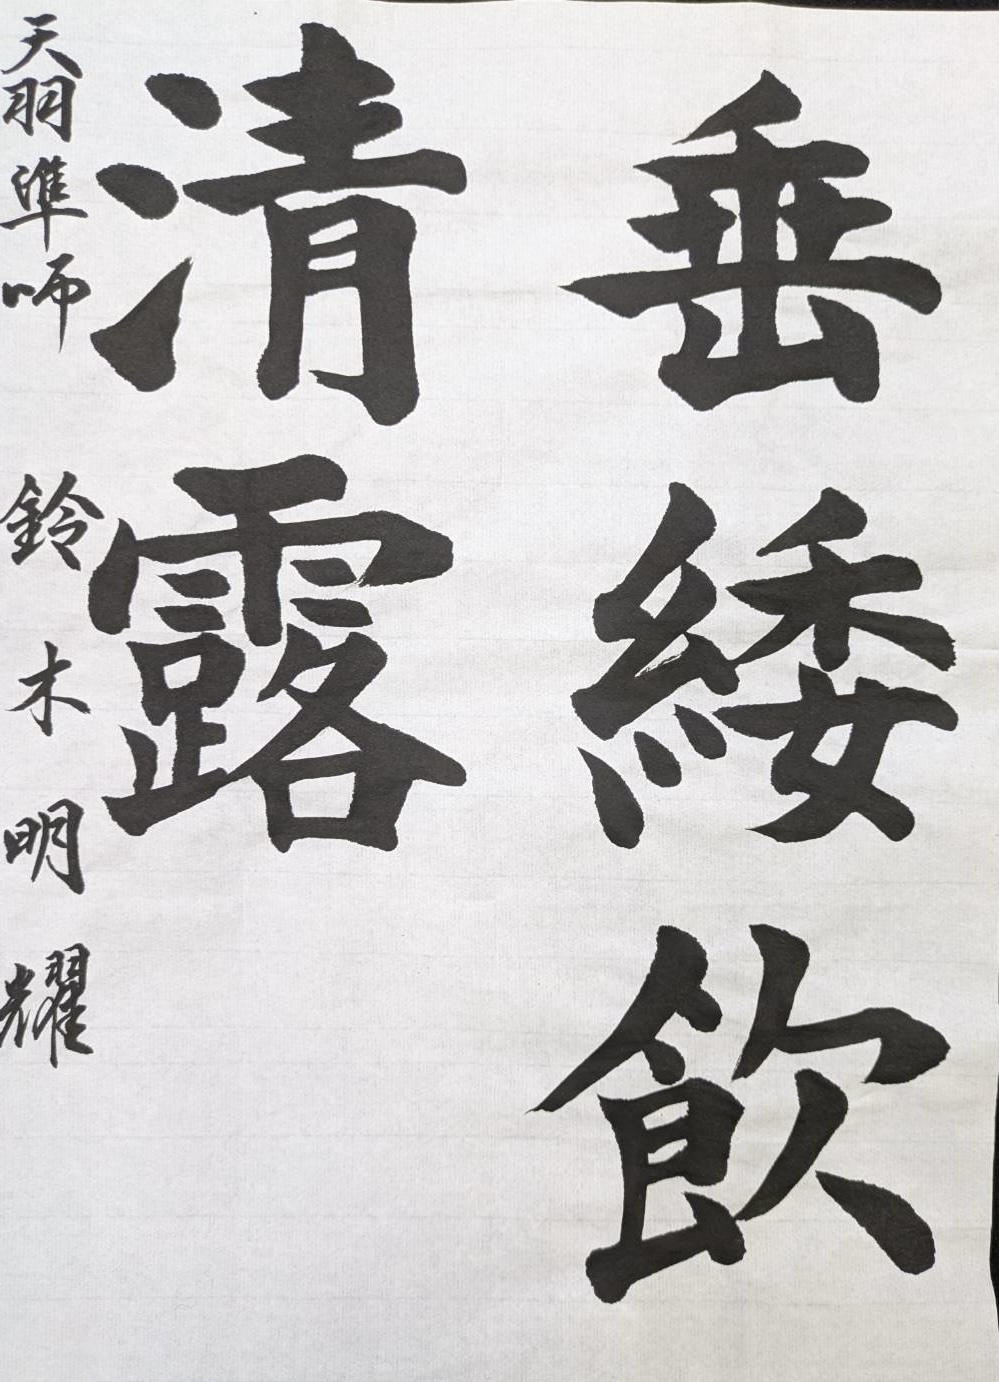 垂緌飲
清露
天羽準師 鈴木明耀